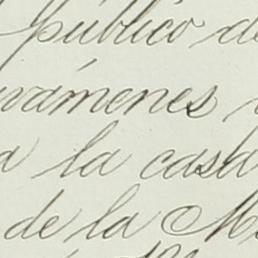 público de
vámenes
a la casa
de la M